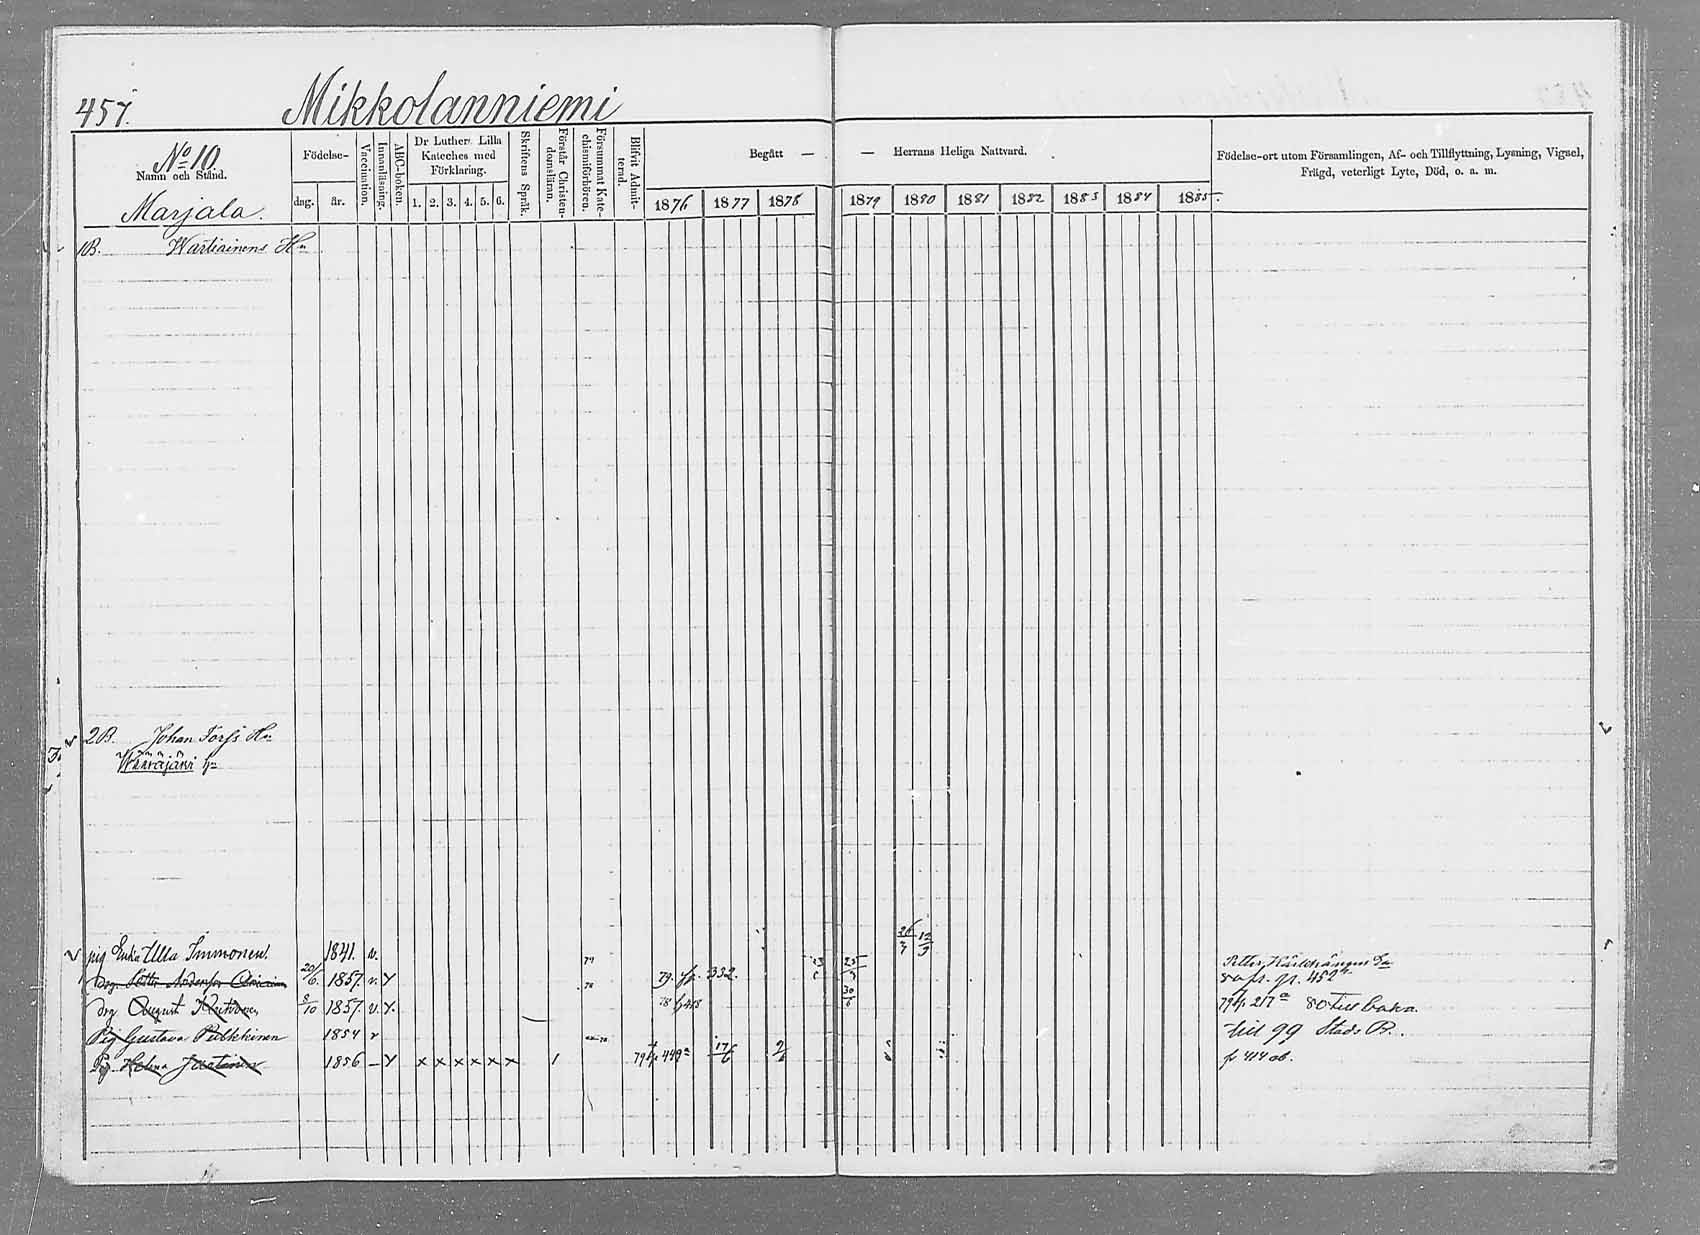 457. Mikkolanniemi
No 10
Namn och Stånd.
Marjala.
Födelse-
dag. år.
Vaccination.
Innanläsning.
ABC-boken.
Dr Luthers Lilla
Kateches med
Förklaring.
1. 2. 3. 4. 5. 6.
Skriftens Språk.
Förstår Christen-
domsläran.
Försummat Kate-
chismiförhören.
Blifvit Admit-
terad.
Begått — — Herrans Heliga Nattvard.
1876 1877 1878 1879 1880 1881 1882 1883 1884 1885
Födelse-ort utom Församlingen, Af- och Tillflyttning, Lysning, Vigsel,
Frägd, veterligt Lyte, Död, o. a. m.
1B. Wartiainens Hn
2B. Johan Torfs Hn
Wääräjärvi
26/3 12/9
pig Ulla Immonen 1841. v. 79
Petter
drg Petter Andersson 20/6. 1857. v. Y 78 79. 332. 80 fr. 452
drg August 8/10 1857. v. Y. 78 30/6 217 80 till baka.
Pig Gustava Pulkkinen 1854 v till 99 Stads B.
Pig Helena 1856 — Y x x x x x x 1 79 449 17/6 fr 414 ob.